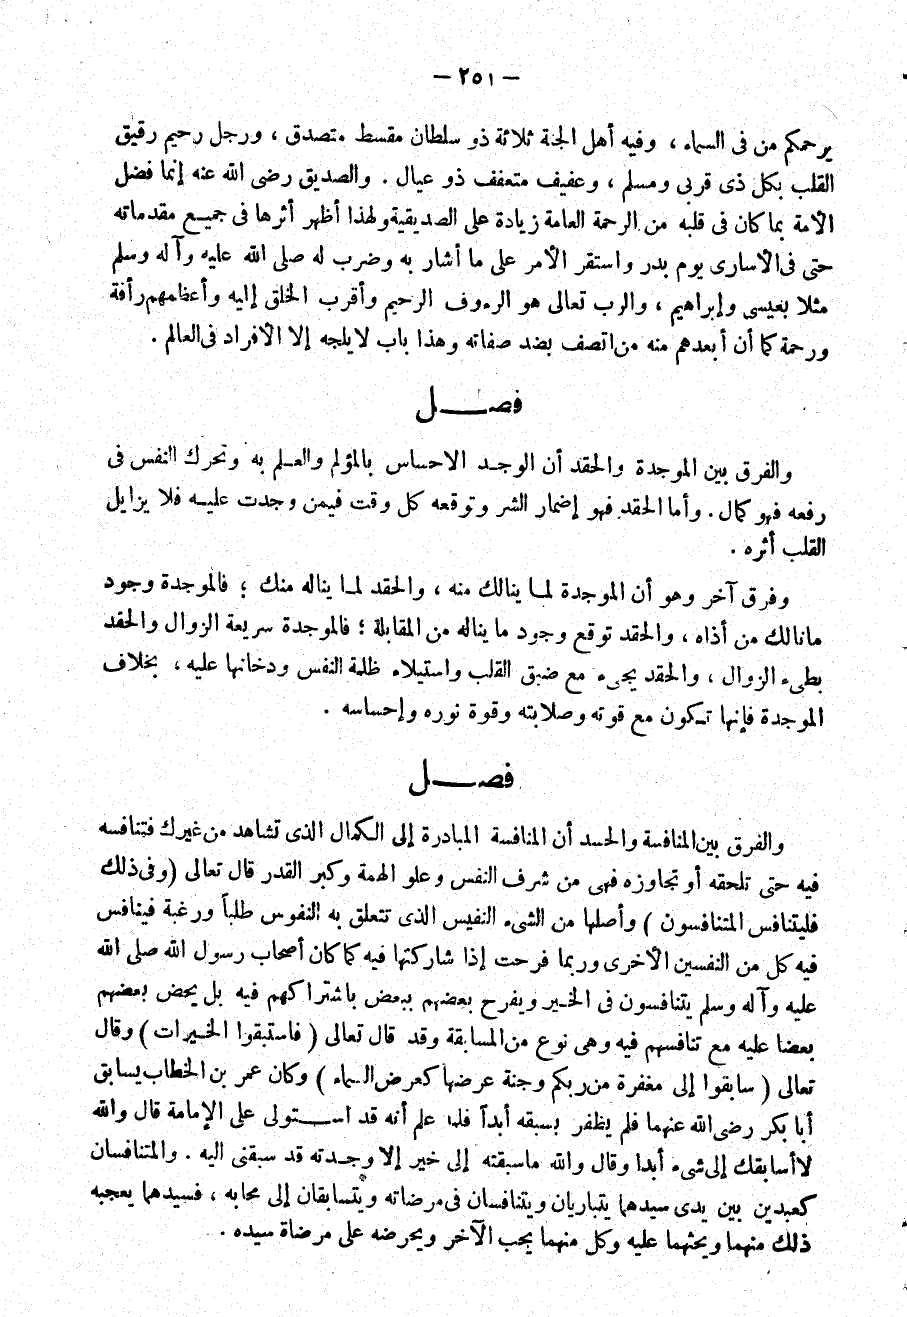 — ٢٥١ —
يرحمكم من فى السماء ، وفيه أهل الجنة ثلاثة ذو سلطان مقسط متصدق ، ورجل رحيم رقيق
القلب بكل ذى قربى ومسلم ، وعفيف متعفف ذو عيال . والصديق رضى الله عنه إنما فضل
الأمة بما كان فى قلبه من الرحمة العامة زيادة على الصديقية ولهذا أظهر أثرها فى جميع مقدماته
حتى فى الأسارى يوم بدر واستقر الأمر على ما أشار به وضرب له صلى الله عليه وآله وسلم
مثلا بعيسى وإبراهيم ، والرب تعالى هو الرءوف الرحيم وأقرب الخلق إليه وأعظمهم رأفة
ورحمة كما أن أبعدهم منه من اتصف بضد صفاته وهذا باب لا يلجه إلا الأفراد فى العالم .
فصـــل
والفرق بين الموجدة والحقد أن الوجد الاحساس بالمؤلم والعلم به وتحرك النفس فى
رفعه فهو كمال . وأما الحقد فهو إضمار الشر وتوقعه كل وقت فيمن وجدت عليه فلا يزايل
القلب أثره .
وفرق آخر وهو أن الموجدة لما ينالك منه ، والحقد لما يناله منك ؛ فالموجدة وجود
مانالك من أذاه ، والحقد توقع وجود ما يناله من المقابلة ؛ فالموجدة سريعة الزوال والحقد
بطىء الزوال ، والحقد يجىء مع ضيق القلب واستيلاء ظلمة النفس ودخانها عليه ، بخلاف
الموجدة فإنها تكون مع قوته وصلابته وقوة نوره وإحساسه .
فصـــل
والفرق بين المنافسة والحسد أن المنافسة المبادرة إلى الكمال الذى تشاهد من غيرك فتنافسه
فيه حتى تلحقه أو تجاوزه فهى من شرف النفس وعلو الهمة وكبر القدر قال تعالى (وفى ذلك
فليتنافس المتنافسون ) وأصلها من الشىء النفيس الذى تتعلق به النفوس طلباً ورغبة فينافس
فيه كل من النفسين الأخرى وربما فرحت إذا شاركتها فيه كما كان أصحاب رسول الله صلى الله
عليه وآله وسلم يتنافسون فى الخير ويفرح بعضهم ببعض باشتراكهم فيه بل يحض بعضهم
بعضا عليه مع تنافسهم فيه وهى نوع من المسابقة وقد قال تعالى ( فاستبقوا الخيرات ) وقال
تعالى ( سابقوا إلى مغفرة من ربكم وجنة عرضها كعرض السماء ) وكان عمر بن الخطاب يسابق
أبا بكر رضى الله عنهما فلم يظفر بسبقه أبداً فلما علم أنه قد استولى على الإمامة قال والله
لا أسابقك إلى شىء أبدا وقال والله ماسبقته إلى خير إلا وجدته قد سبقنى اليه . والمتنافسان
كعبدين بين يدى سيدهما يتباريان ويتنافسان فى مرضاته ويتسابقان إلى محابه ، فسيدهما يعجبه
ذلك منهما ويحثهما عليه وكل منهما يحب الآخر ويحرضه على مرضاة سيده .